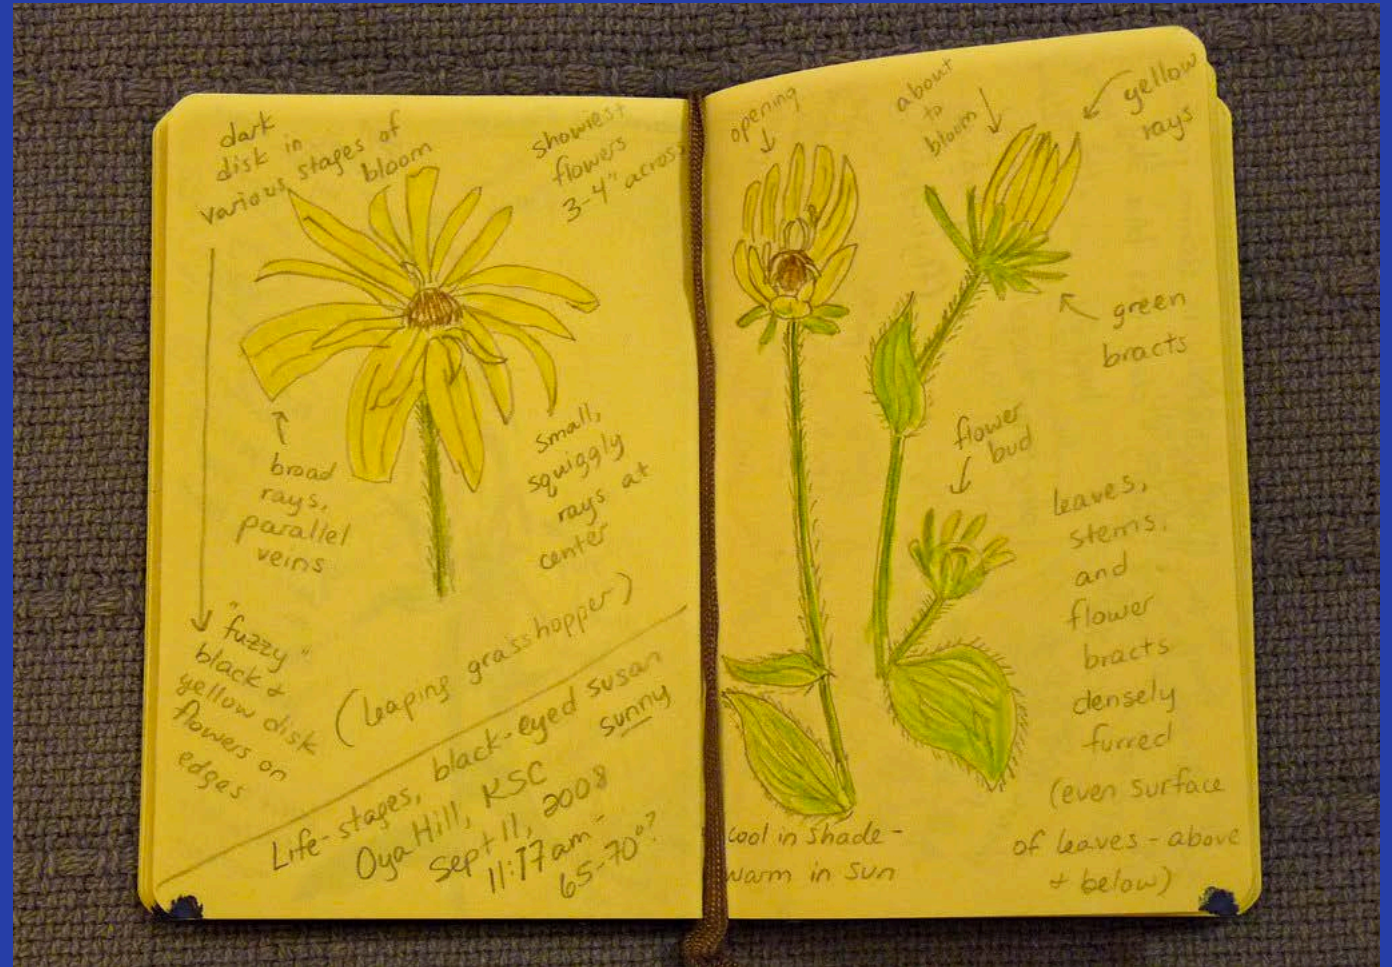 dark
disk in
various stages of
bloom
showiest
flowers
3-4" across
broad
rays,
parallel
veins
small,
squiggly
rays at
center
"fuzzy"
black +
yellow disk
flowers on
edges
(leaping grasshopper)
Life-stages, black-eyed susan
Oya Hill, KSC
sunny
Sept 11, 2008
11:17 am -
65-70°?
opening
about
to
bloom
yellow
rays
green
bracts
flower
bud
leaves,
stems,
and
flower
bracts
densely
furred
(even surface
of leaves - above
+ below)
cool in shade -
warm in sun